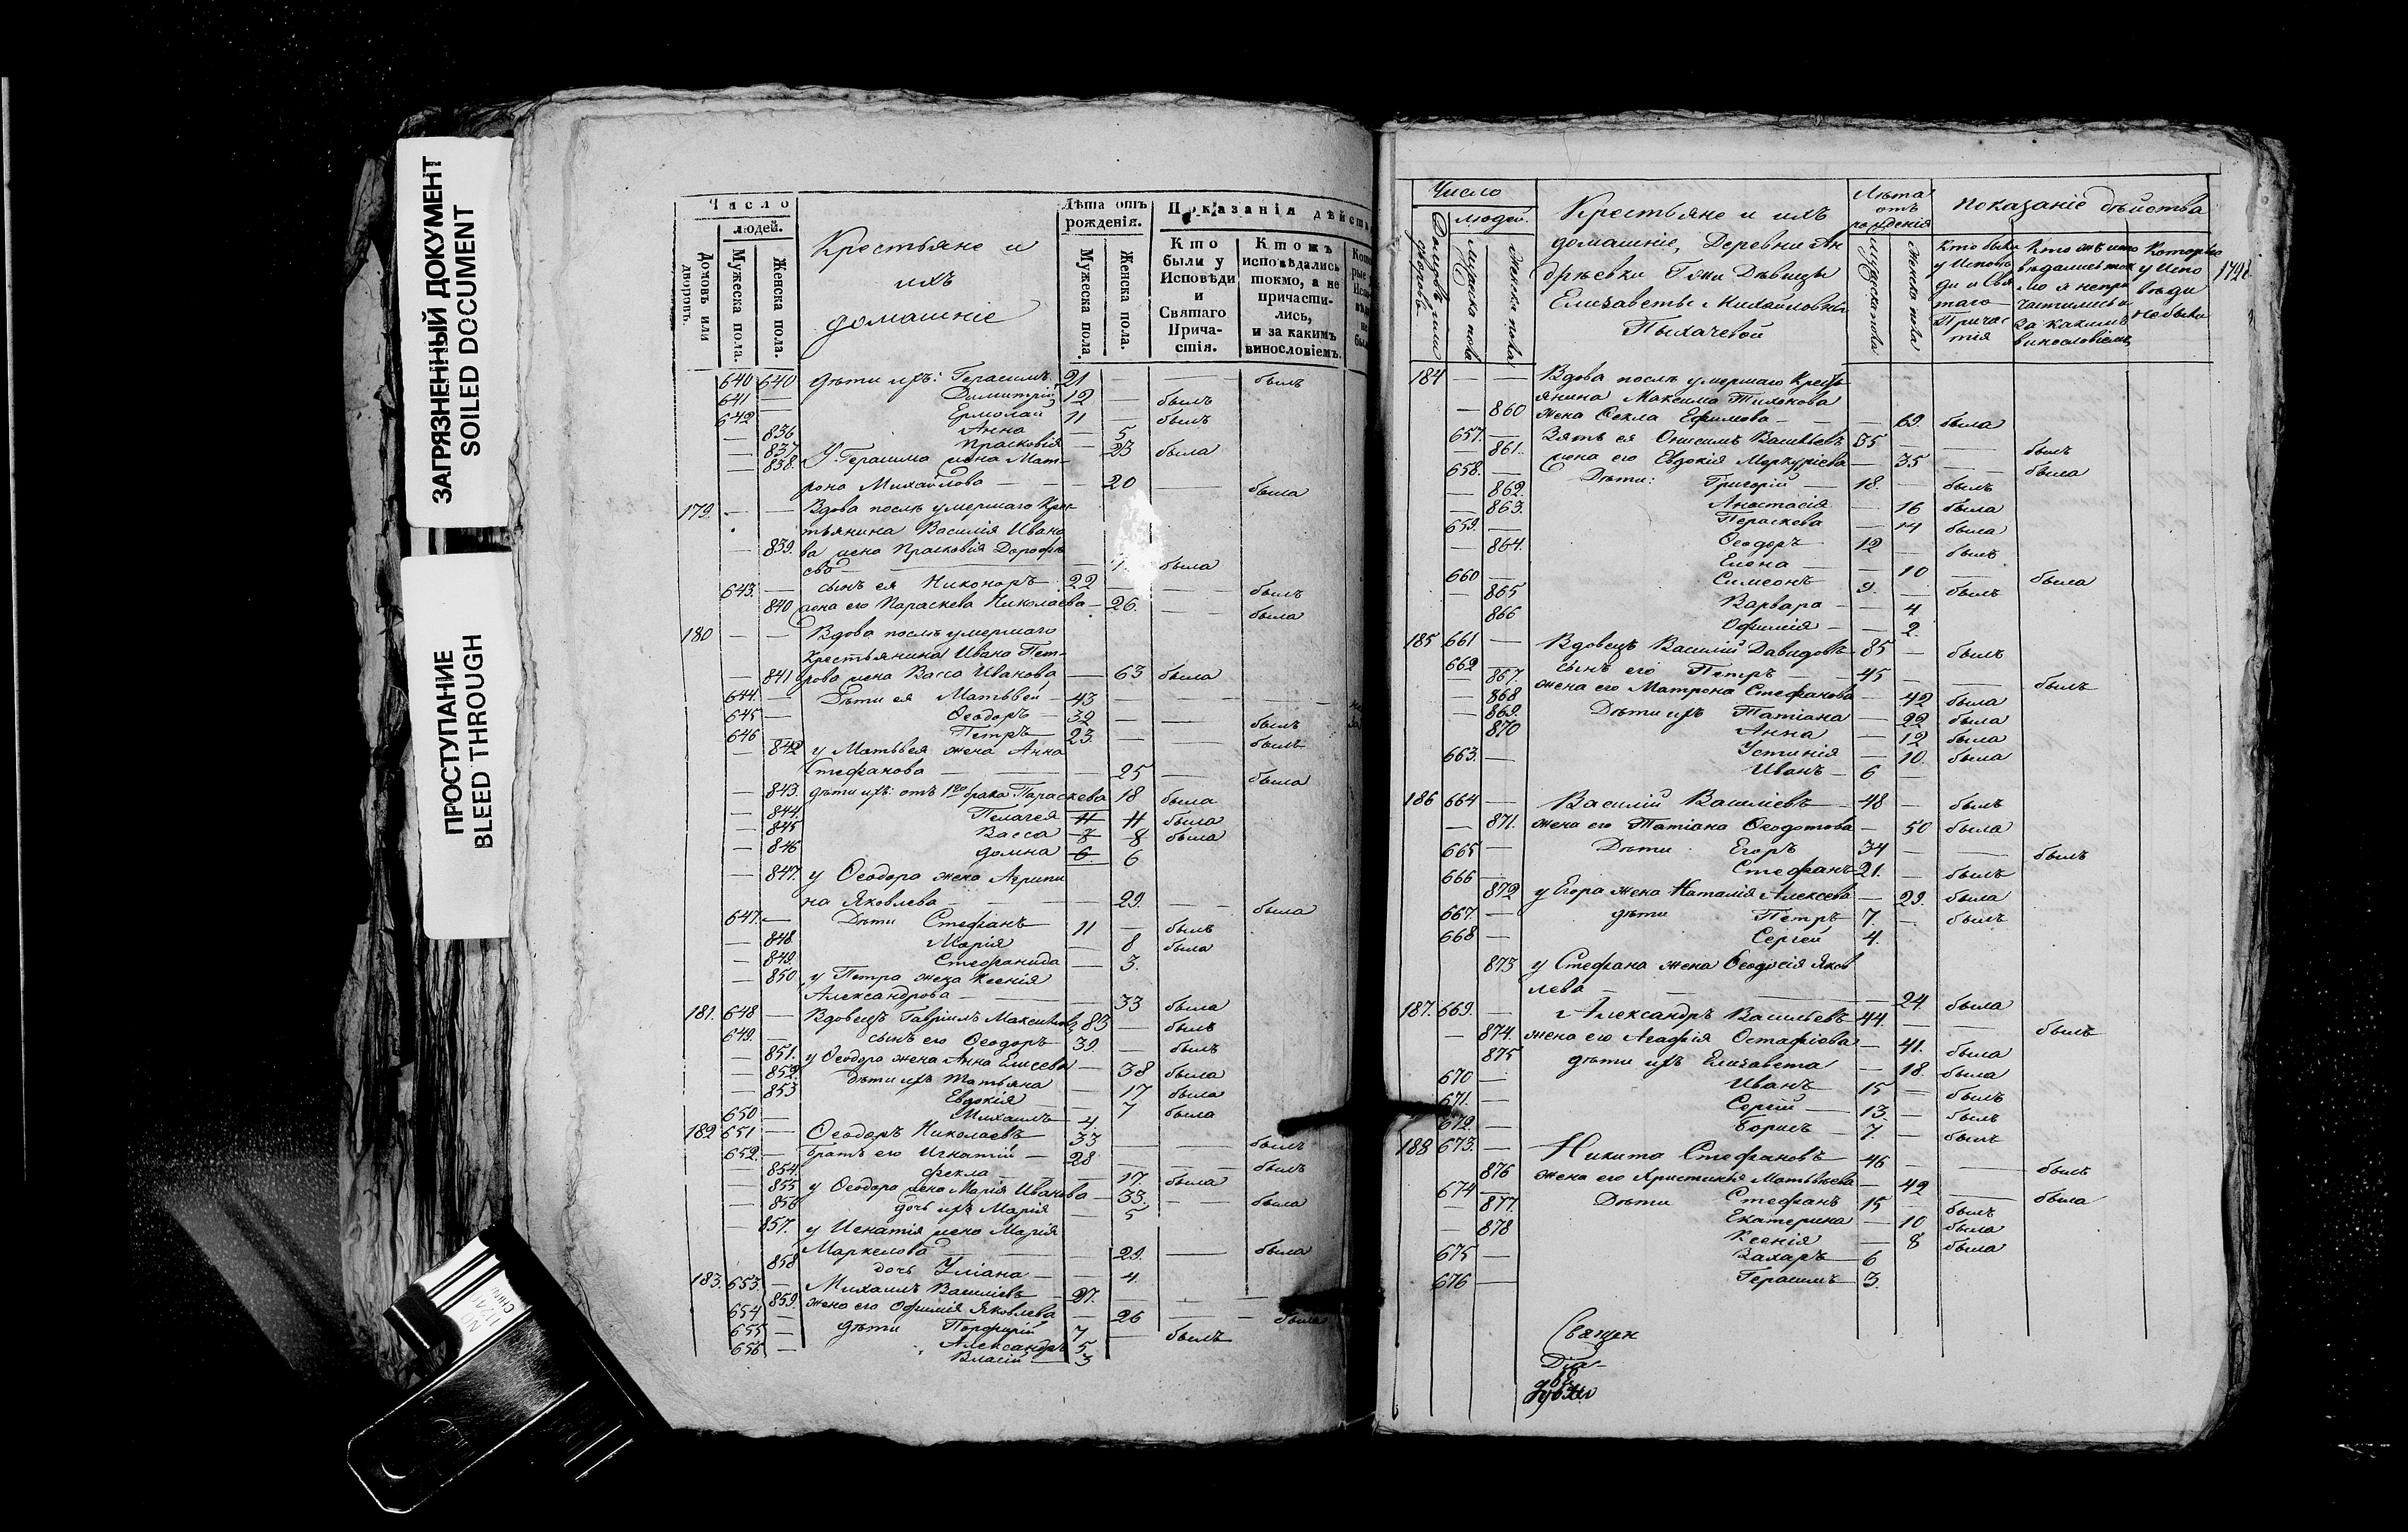 ЗАГРЯЗНЕННЫЙ ДОКУМЕНТ
SOILED DOCUMENT
ПРОСТУПАНИЕ
BLEED THROUGH
Число
людей.
Домовъ или дворовъ.
Мужеска пола.
Женска пола.
Крестьяне и
ихъ
домашніе
Лѣта отъ рожденія.
Мужеска пола
Женска пола.
Показанія дѣйств
Кто были у Исповѣди и Святаго Прича- стія.
Ктожъ исповѣдались токмо, а не причасти- лись, и за какимъ винословіемъ.
640 640 дѣти ихъ: Герасимъ 21 — — былъ
641 — Димитрій 12 — былъ
642 — Ермолай 11 — былъ
— 836 Анна — 5
— 837 Прасковія — 23 была
— 838. У Герасима жена Мат-
рона Михайлова — — 20 — была
179. — — Вдова послѣ умершаго Крес-
тьянина Василія Ивано
— 839. ва жена Прасковія Дорофѣ
ева — была
643. — сынъ ея Никоноръ 22 — — былъ
840 жена его Параскева Николаева — 26. — была
180 — — Вдова послѣ умершаго
Крестьянина Ивана Пет-
— 841 рова жена Васса Иванова — 63 была
644. — Дѣти ея Матьвей — 43
645 — Ѳеодоръ — 32 — — былъ
646 — Петръ 23. — — былъ
— 842 у Матьвея жена Анна
Стефанова — — 25 — была
— 843. дѣти ихъ: отъ 1го брака Параскева 18 была
— 844. Пелагея 11 11 была
— 845 Васса 7 8 была
— 846 домна 6. 6
— 847. у Ѳеодора жена Агрипи
на Яковлева — — 29. — была
647. — Дѣти Стефанъ 11 — былъ
— 848. Марія — 8 была
— 849. Стефанида — 3.
— 850 у Петра жена Ксенія
Александрова — — 33 была
181. 648 — Вдовецъ Гавріилъ Максимовъ 83 — былъ
649. — сынъ его Ѳеодоръ 39. — былъ
— 851. у Ѳеодора жена Анна Елисеева — 38 была
— 852. дѣти ихъ Татьяна — 17 была
— 853 Евдокія — 7 была
650 — Михаилъ 4.
182 651 — Ѳеодоръ Николаевъ 33 — — былъ
652. — братъ его Игнатій — 28 — — былъ
— 854. Фекла — 17. была
— 855 у Ѳеодора жена Марія Иванова — 33. — была
— 856 дочь ихъ Марія — 5
— 857. у Игнатія жена Марія
Маркелова — — 29. — была
858 дочь Уліана — — 4.
183. 653. — Михаилъ Василіевъ — 27. — —
859. жена его Офимія Яковлева — 26 — была
654 — дѣти Порфирій 7 — былъ
655 — Александръ 5
656 — Власій — 3
Число
людей.
Домовъ или дворовъ.
Мужеска пола
женска пола
Крестьяне и ихъ
домашніе, Деревни Ан
дрѣевки Гжи Дѣвицы
Елизаветы Михайловны
Пыхачевой
Лѣта отъ рожденія
мужеска пола
женска пола
Показаніе дѣйства
Кто были у Исповѣ ди и Свя таго Причас тія
Кто жъ испо вѣдались ток мо а не при частились и за какимъ винословіемъ
Которые у Испо вѣди небыли
184 — — Вдова послѣ умершаго Кресть
янина Максима Тихонова
— 860 жена Ѳекла Ефимова — — 69. была
657. — Зять ея Онисимъ Васильевъ 35 — — былъ
— 861. жена его Евдокія Меркуріева — 35 — была
658. — Дѣти: Григорій — 18. — былъ
— 862. Анастасія — 16 была
— 863. Параскева — 14 была
659. — Ѳеодоръ 12 — былъ
— 864. Елена — — 10 — была
660 — Симеонъ 9. — былъ
— 865 Варвара — — 4
866 Офимія — — 2.
185 661 — Вдовецъ Василій Давидовъ 85 — былъ
662 — сынъ его Петръ — 45 — — былъ
867. жена его Матрона Стефанова — 42 была
— 868 Дѣти ихъ Татіана — 22 была
— 869. Анна — 12 была
870 Устинія — 10. была
663. — Иванъ — 6 —
186 664 — Василій Василіевъ — 48 — былъ
— 871. жена его Татіана Ѳеодотова — 50 была
665 — Дѣти Егоръ 34 — — былъ
666 — Стефанъ 21. — былъ
872 у Егора жена Наталія Алексѣева — 29. была
667. — дѣти Петръ 7. — былъ
668 — Сергей 4.
873 у Стефана жена Ѳеодосія Яков
лева — — 24 была
187. 669. — Александръ Васильевъ 44. — — былъ
— 874. жена его Агафія Остафіова — 41. была
875 дѣти ихъ Елизавета — 18. была
670 — Иванъ 15 — былъ
671. — Сергій 13. — былъ
672. — Борисъ 7. — былъ
188 673. — Никита Стефановъ 46 — — былъ
876 жена его Христинья Матьвѣева — 42 — была
674 — Дѣти Стефанъ 15 — былъ
— 877. Екатерина — 10 была
— 878 Ксенія — 8 была
675 — Захаръ 6
676 — Герасимъ 3.
Священ
Діа-